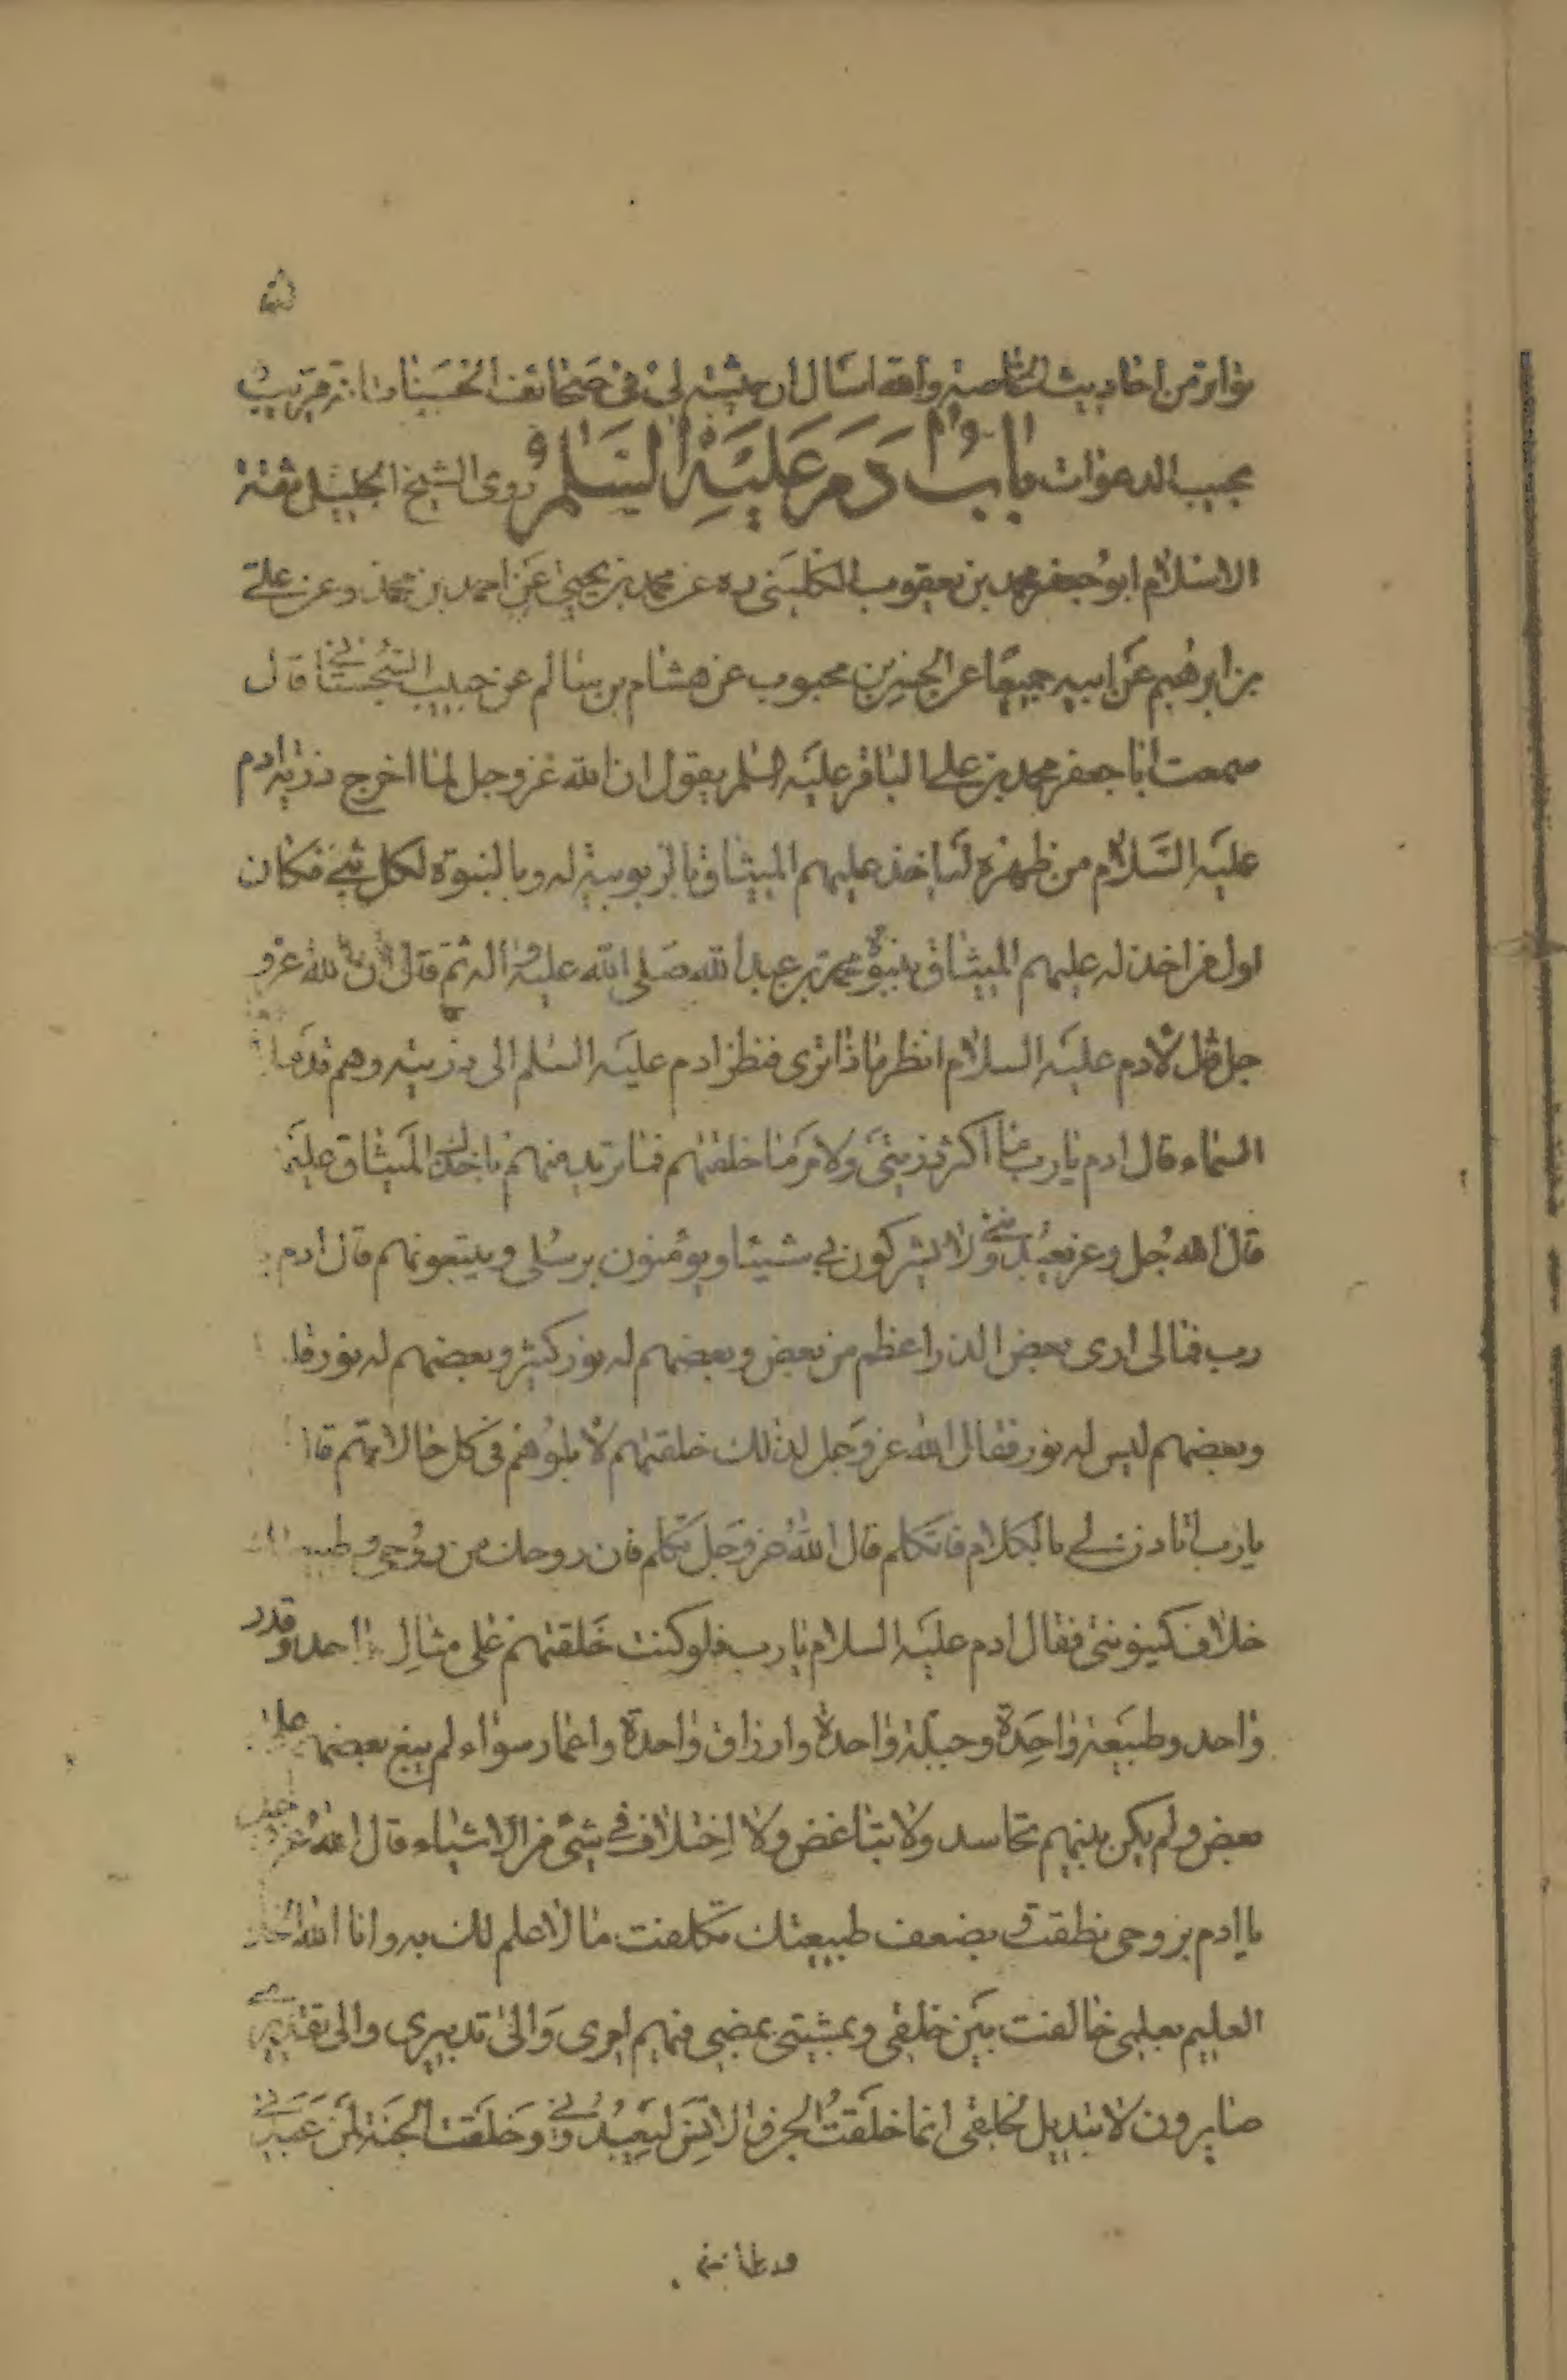 تواتر من احاديث الخاصة والله اسال ان يثبته لى فى صحائف الحسنات انه قريب
مجيب الدعوات باب ادم عليه السلم روى الشيخ الجليل ثقة
الاسلام ابو جعفر محمد بن يعقوب الكلينى ره عن محمد بن يحيى عن احمد بن محمد وعن على
بن ابرهيم عن ابيه جميعا عن الحسن بن محبوب عن هشام بن سالم عن حبيب السجستانى قال
سمعت ابا جعفر محمد بن على الباقر عليه السلم يقول ان الله عز وجل لما اخرج ذرية ادم
عليه السلام من ظهره لياخذ عليهم الميثاق بالربوبية له وبالنبوة لكل نبى فكان
اول من اخذ له عليهم الميثاق بنبوة محمد بن عبد الله صلى الله عليه واله ثم قال ان الله عز و
جل قال لادم عليه السلام انظر ماذا ترى فنظر ادم عليه السلم الى ذريته وهم
السماء قال ادم يا رب ما اكثر ذريتى ولامر ما خلقتهم فما تريد منهم باخذك الميثاق عليهم
قال الله جل وعز يعبدوننى ولا يشركون بى شيئا ويؤمنون برسلى ويتبعونهم قال ادم
رب فمالى ارى بعض الذر اعظم من بعض وبعضهم له نور كثير وبعضهم له نور
وبعضهم ليس له نور فقال الله عز وجل لذلك خلقتهم لابلوهم فى كل حالاتهم
يا رب اتاذن لى بالكلام فاتكلم قال الله عز وجل تكلم فان روحك من روحى
خلاف كينونتى فقال ادم عليه السلام يا رب فلو كنت خلقتهم على مثال واحد وقدر
واحد وطبيعة واحدة وجبلة واحدة وارزاق واحدة واعمار سواء لم يبغ بعضهم على
بعض ولم يكن بينهم تحاسد ولا تباغض ولا اختلاف فى شىء من الاشياء قال الله عز وجل
يا ادم بروحى نطقت وبضعف طبيعتك تكلفت ما لا علم لك به وانا الله
العليم بعلمى خالفت بين خلقى وبمشيتى يمضى فيهم امرى والى تدبيرى والى تقديرى
صايرون لا تبديل لخلقى انما خلقت الجن والانس ليعبدونى وخلقت الجنة لمن عبدنى